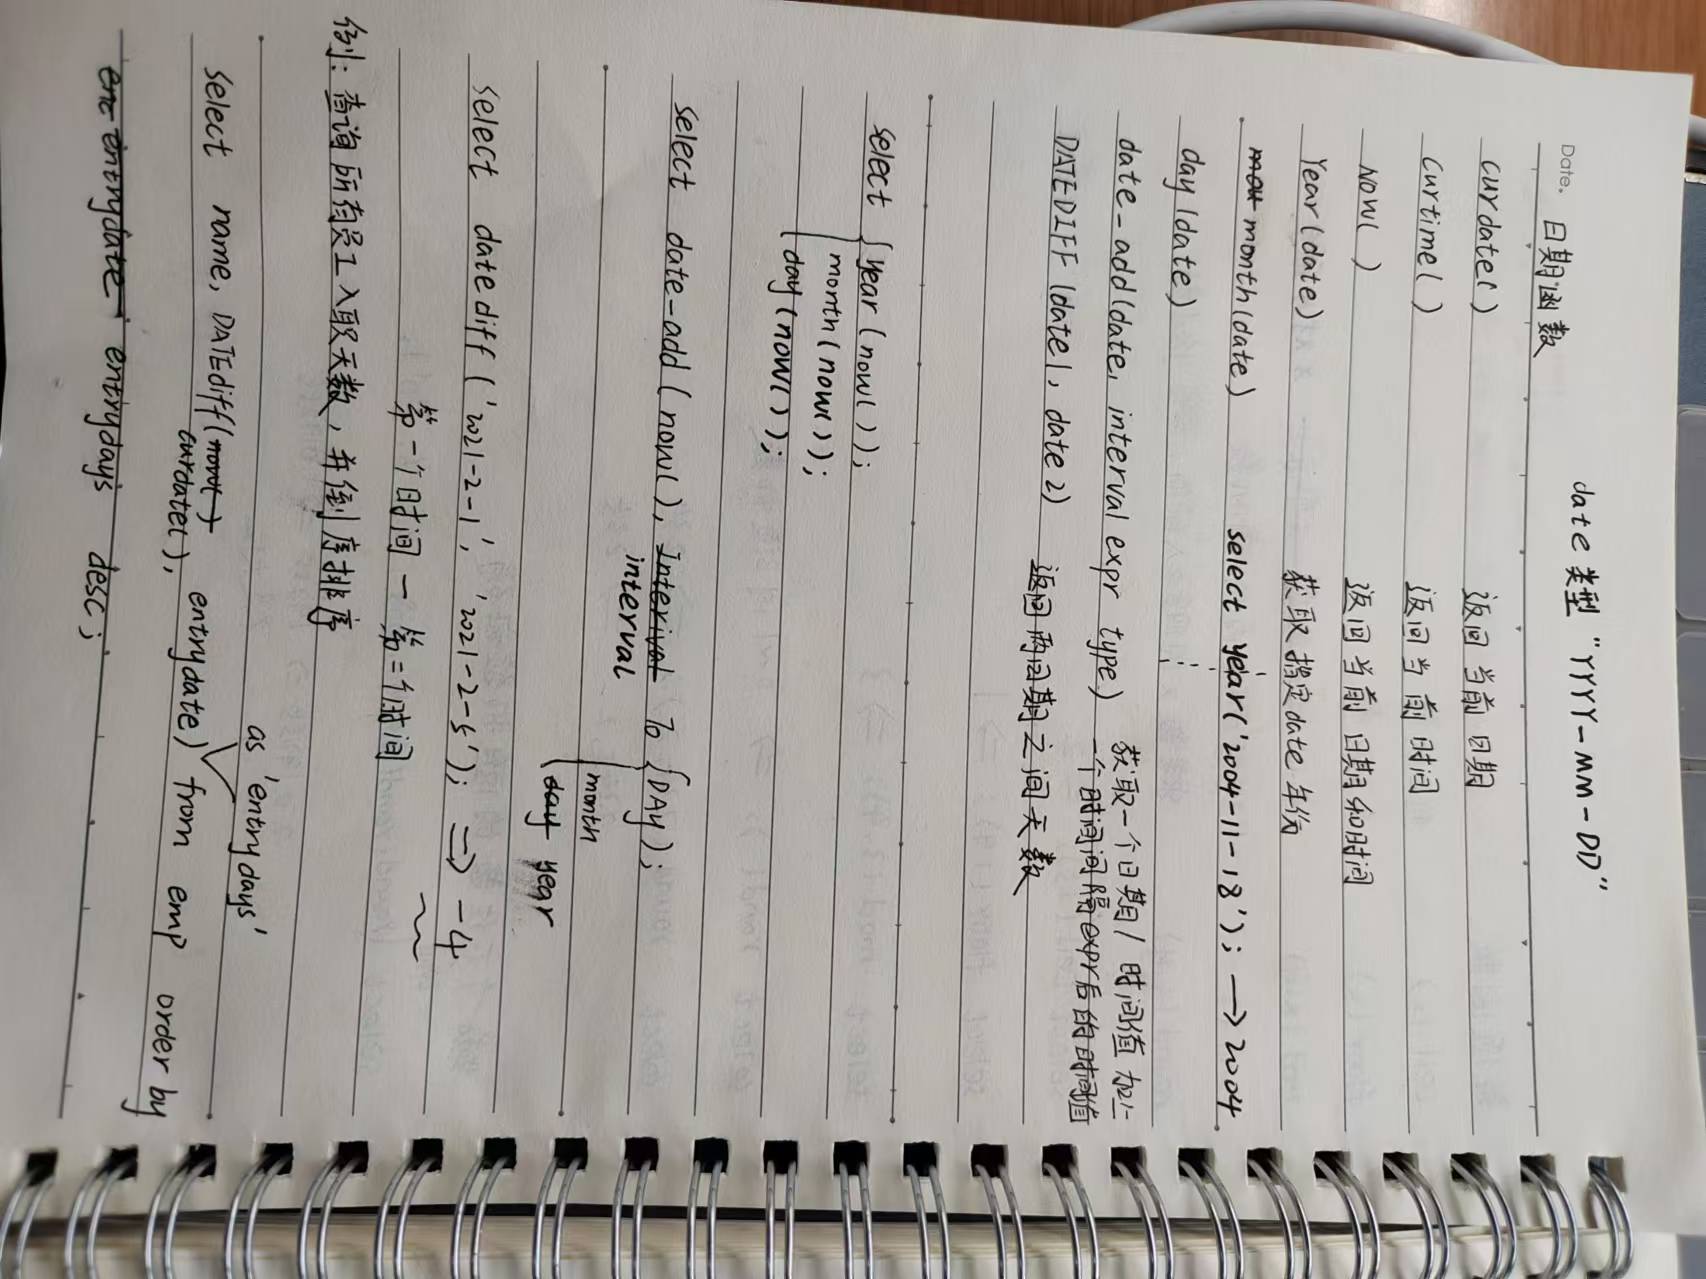 date 类型 "YYYY-MM-DD"
Date. 日期函数
curdate() 返回当前日期
curtime() 返回当前时间
NOW() 返回当前日期和时间
Year(date) 获取指定date 年份
mou month(date) select year('2004-11-18'); → 2004
day(date)
date_add(date, interval expr type) 获取一个日期/时间值加上
一个时间间隔expr后的时间值
DATEDIFF (date1, date2) 返回两日期之间天数
select { year (now());
month(now());
day(now());
select date-add (now(), Interival 70 { DAY);
interval
month
day year
select datediff ('2021-2-1', '2021-2-5'); => -4
第一个时间 - 第二个时间
例: 查询所有员工入职天数, 并倒序排序
as 'entrydays'
select name, DATEdiff(now() entrydate) from emp order by
curdate(),
enc entrydate entrydays desc;